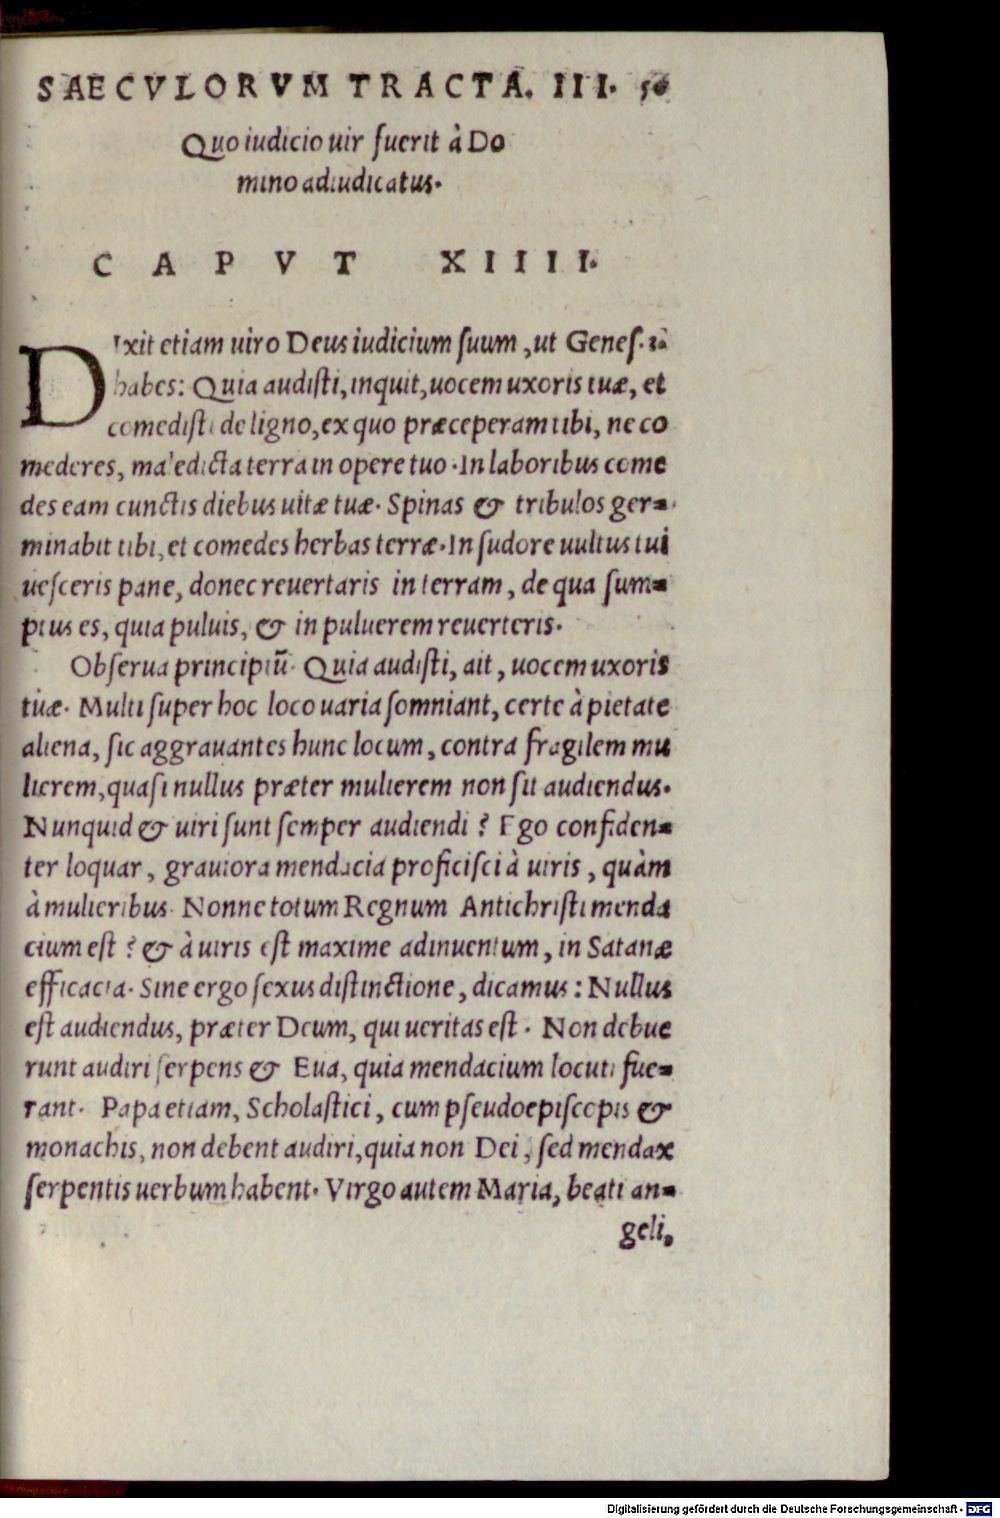 SAECVLORVM TRACTA. III. 56
Quo iudicio uir fuerit à Do
mino adiudicatus.
CAPVT XIIII.
DIxit etiam uiro Deus iudicium suum, ut Genes. iij
habes: Quia audisti, inquit, uocem uxoris tuæ, et
comedisti de ligno, ex quo præceperam tibi, ne co
mederes, maledicta terra in opere tuo. In laboribus come
des eam cunctis diebus uitæ tuæ. Spinas & tribulos ger-
minabit tibi, et comedes herbas terræ. In sudore uultus tui
uesceris pane, donec reuertaris in terram, de qua sum-
ptus es, quia puluis, & in puluerem reuerteris.
Obserua principiū. Quia audisti, ait, uocem uxoris
tuæ. Multi super hoc loco uaria somniant, certe à pietate
aliena, sic aggrauantes hunc locum, contra fragilem mu
lierem, quasi nullus præter mulierem non sit audiendus.
Nunquid & uiri sunt semper audiendi? Ego confiden-
ter loquar, grauiora mendacia proficisci à uiris, quàm
à mulieribus. Nonne totum Regnum Antichristi menda
cium est? & à uiris est maxime adinuentum, in Satanæ
efficacia. Sine ergo sexus distinctione, dicamus: Nullus
est audiendus, præter Deum, qui ueritas est. Non debue
runt audiri serpens & Eua, quia mendacium locuti fue-
rant. Papa etiam, Scholastici, cum pseudoepiscopis &
monachis, non debent audiri, quia non Dei, sed mendax
serpentis uerbum habent. Virgo autem Maria, beati an-
geli,
Digitalisierung gefördert durch die Deutsche Forschungsgemeinschaft - DFG